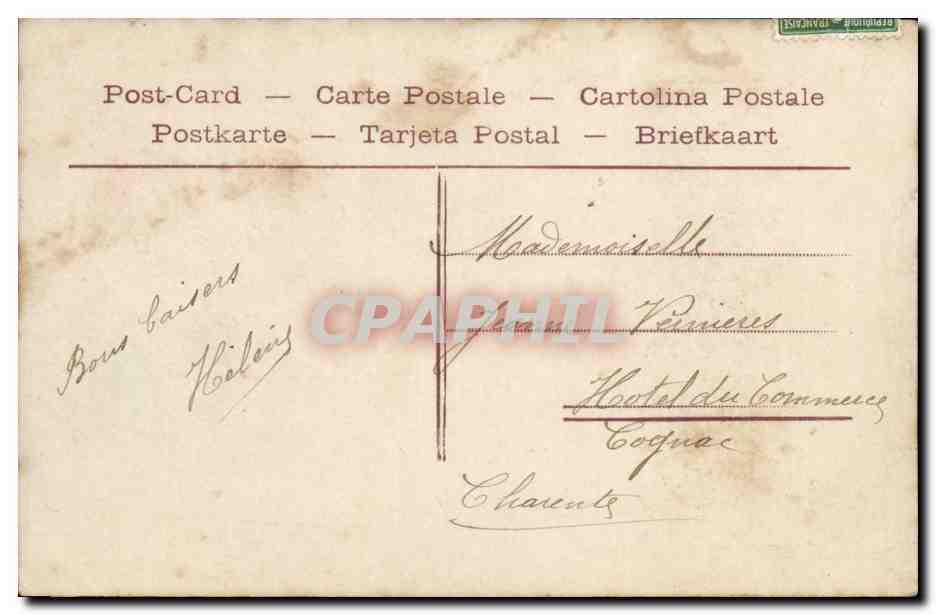 RÉPUBLIQUE FRANÇAISE
Post-Card — Carte Postale — Cartolina Postale
Postkarte — Tarjeta Postal — Briefkaart
Bons baisers
Hélène
Mademoiselle
Vernieres
Hotel du Commerce
Cognac
Charente
CPAPHIL